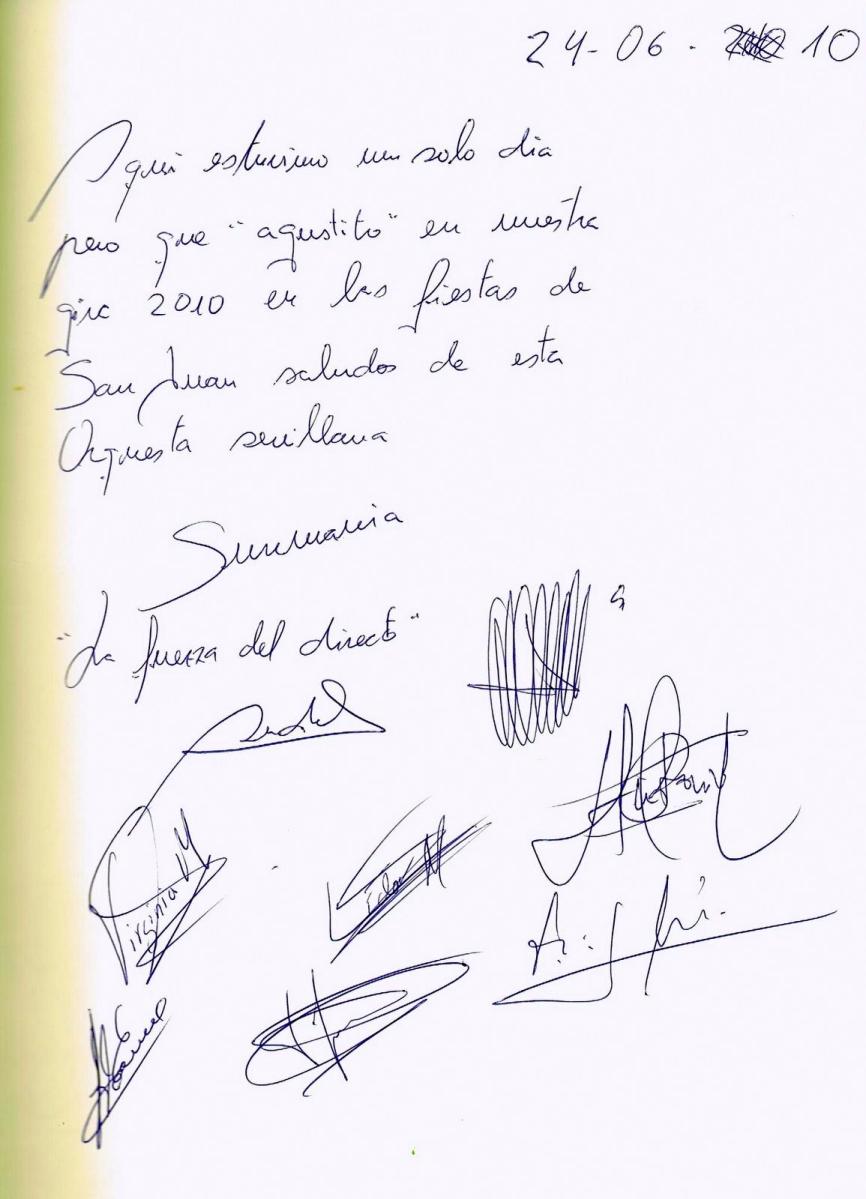 24-06. 10
Aqui estuvimo un solo dia
pero que "agustito" en nuestra
gira 2010 en las fiestas de
San Juan saludos de esta
Orquesta sevillana
Sunmania
"La fuerza del directo"
Virginia M